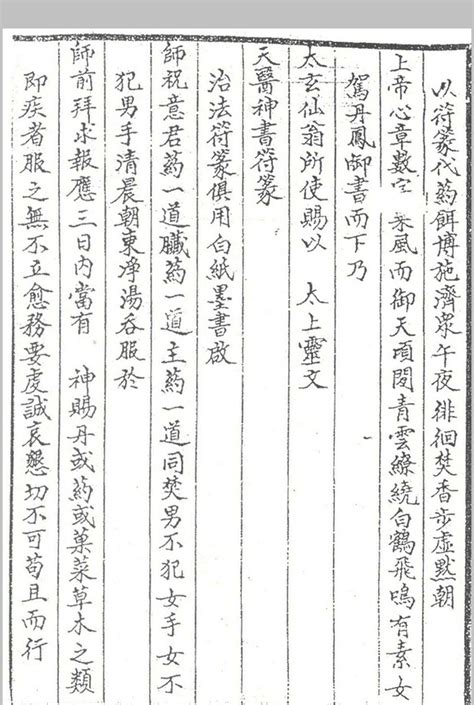 以符篆代药餌博施濟眾午夜徘徊焚香步虛默朝
上帝心章數字 乘風而御天頃閒青雲繚繞白鶴飛鳴有素女
駕丹鳳御書而下乃
太玄仙翁所使賜以 太上靈文
天醫神書符篆
治法符篆俱用白紙墨書啟
師祝意君药一道臟药一道主药一道同焚男不犯女手女不
犯男手清晨朝東淨湯吞服於
師前拜求報應三日内當有 神賜丹或药或菓菜草木之類
即疾者服之無不立愈務要虔誠哀懇切不可苟且而行